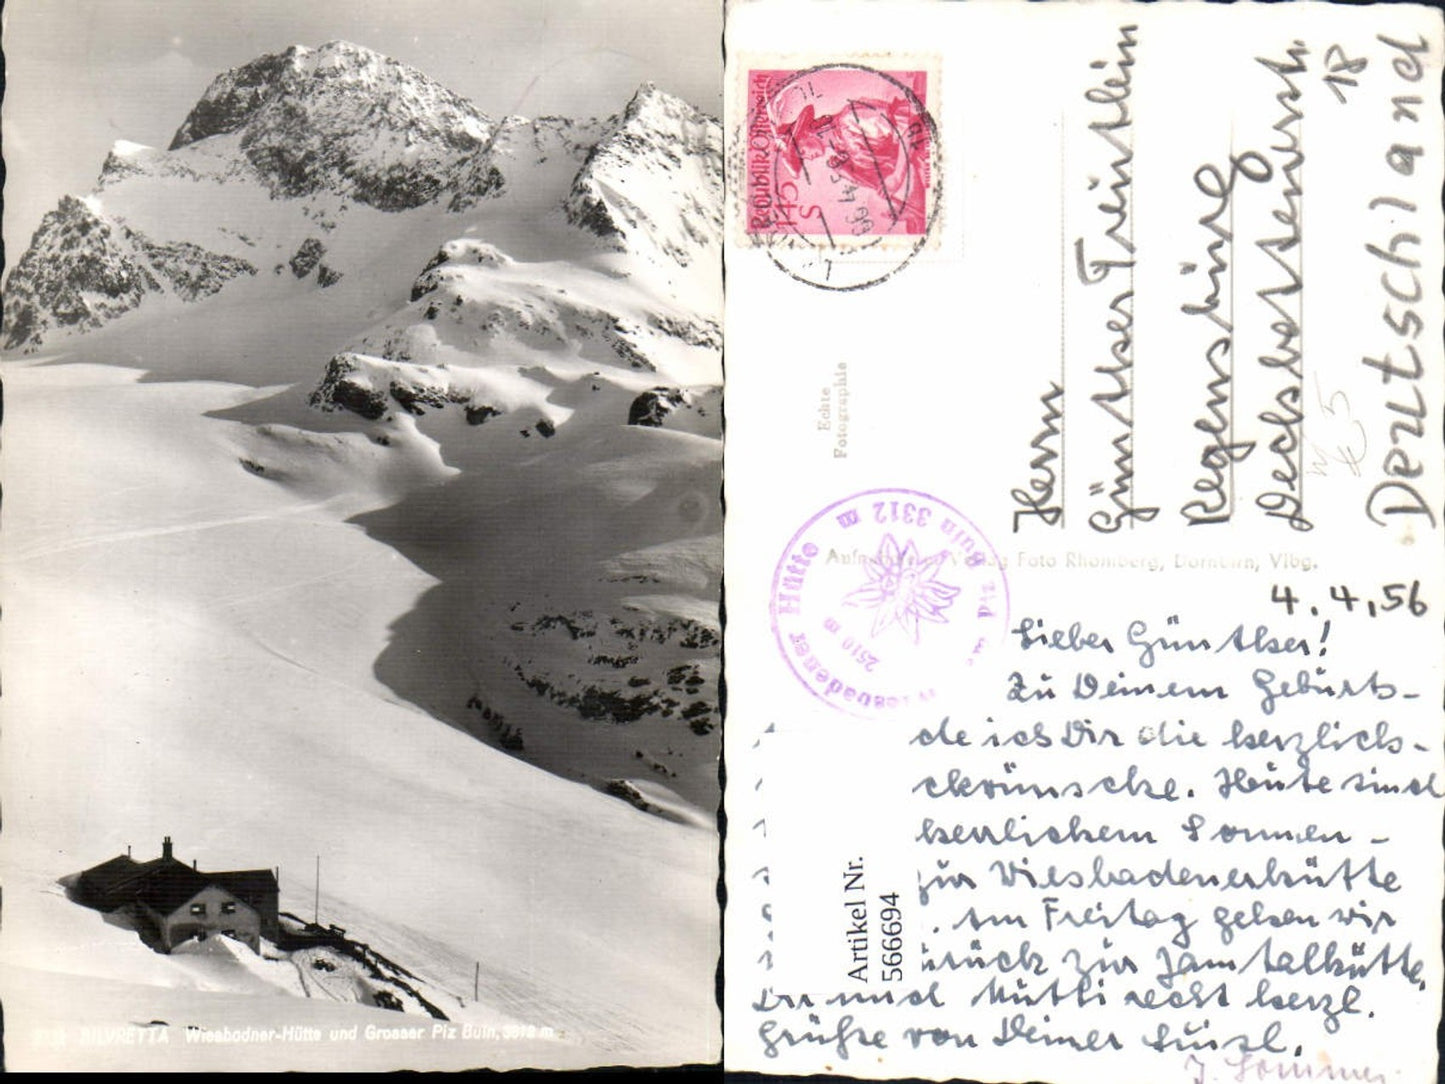 SILVRETTA Wiesbadner-Hütte und Grosser Piz Buin, 3312 m
Republik Österreich
1.45 S
Echte
Fotographie
Herrn
Günther
Regensburg
Dechbettenerstr.
18
Deutschland
Wiesbadener Hütte
2510 m
Piz Buin 3312 m
Verlag Foto Rhomberg, Dornbirn, Vlbg.
4.4.56
Lieber Günther!
Zu Deinem Geburts-
de ich Dir die herzlich-
ckwünsche. Heute sind
herrlichem Sonnen-
zur Wiesbadenerhütte
. Am Freitag gehen wir
urück zur Jamtalhütte.
Dir und Mutti recht herzl.
Grüße von Deiner
Artikel Nr.
566694